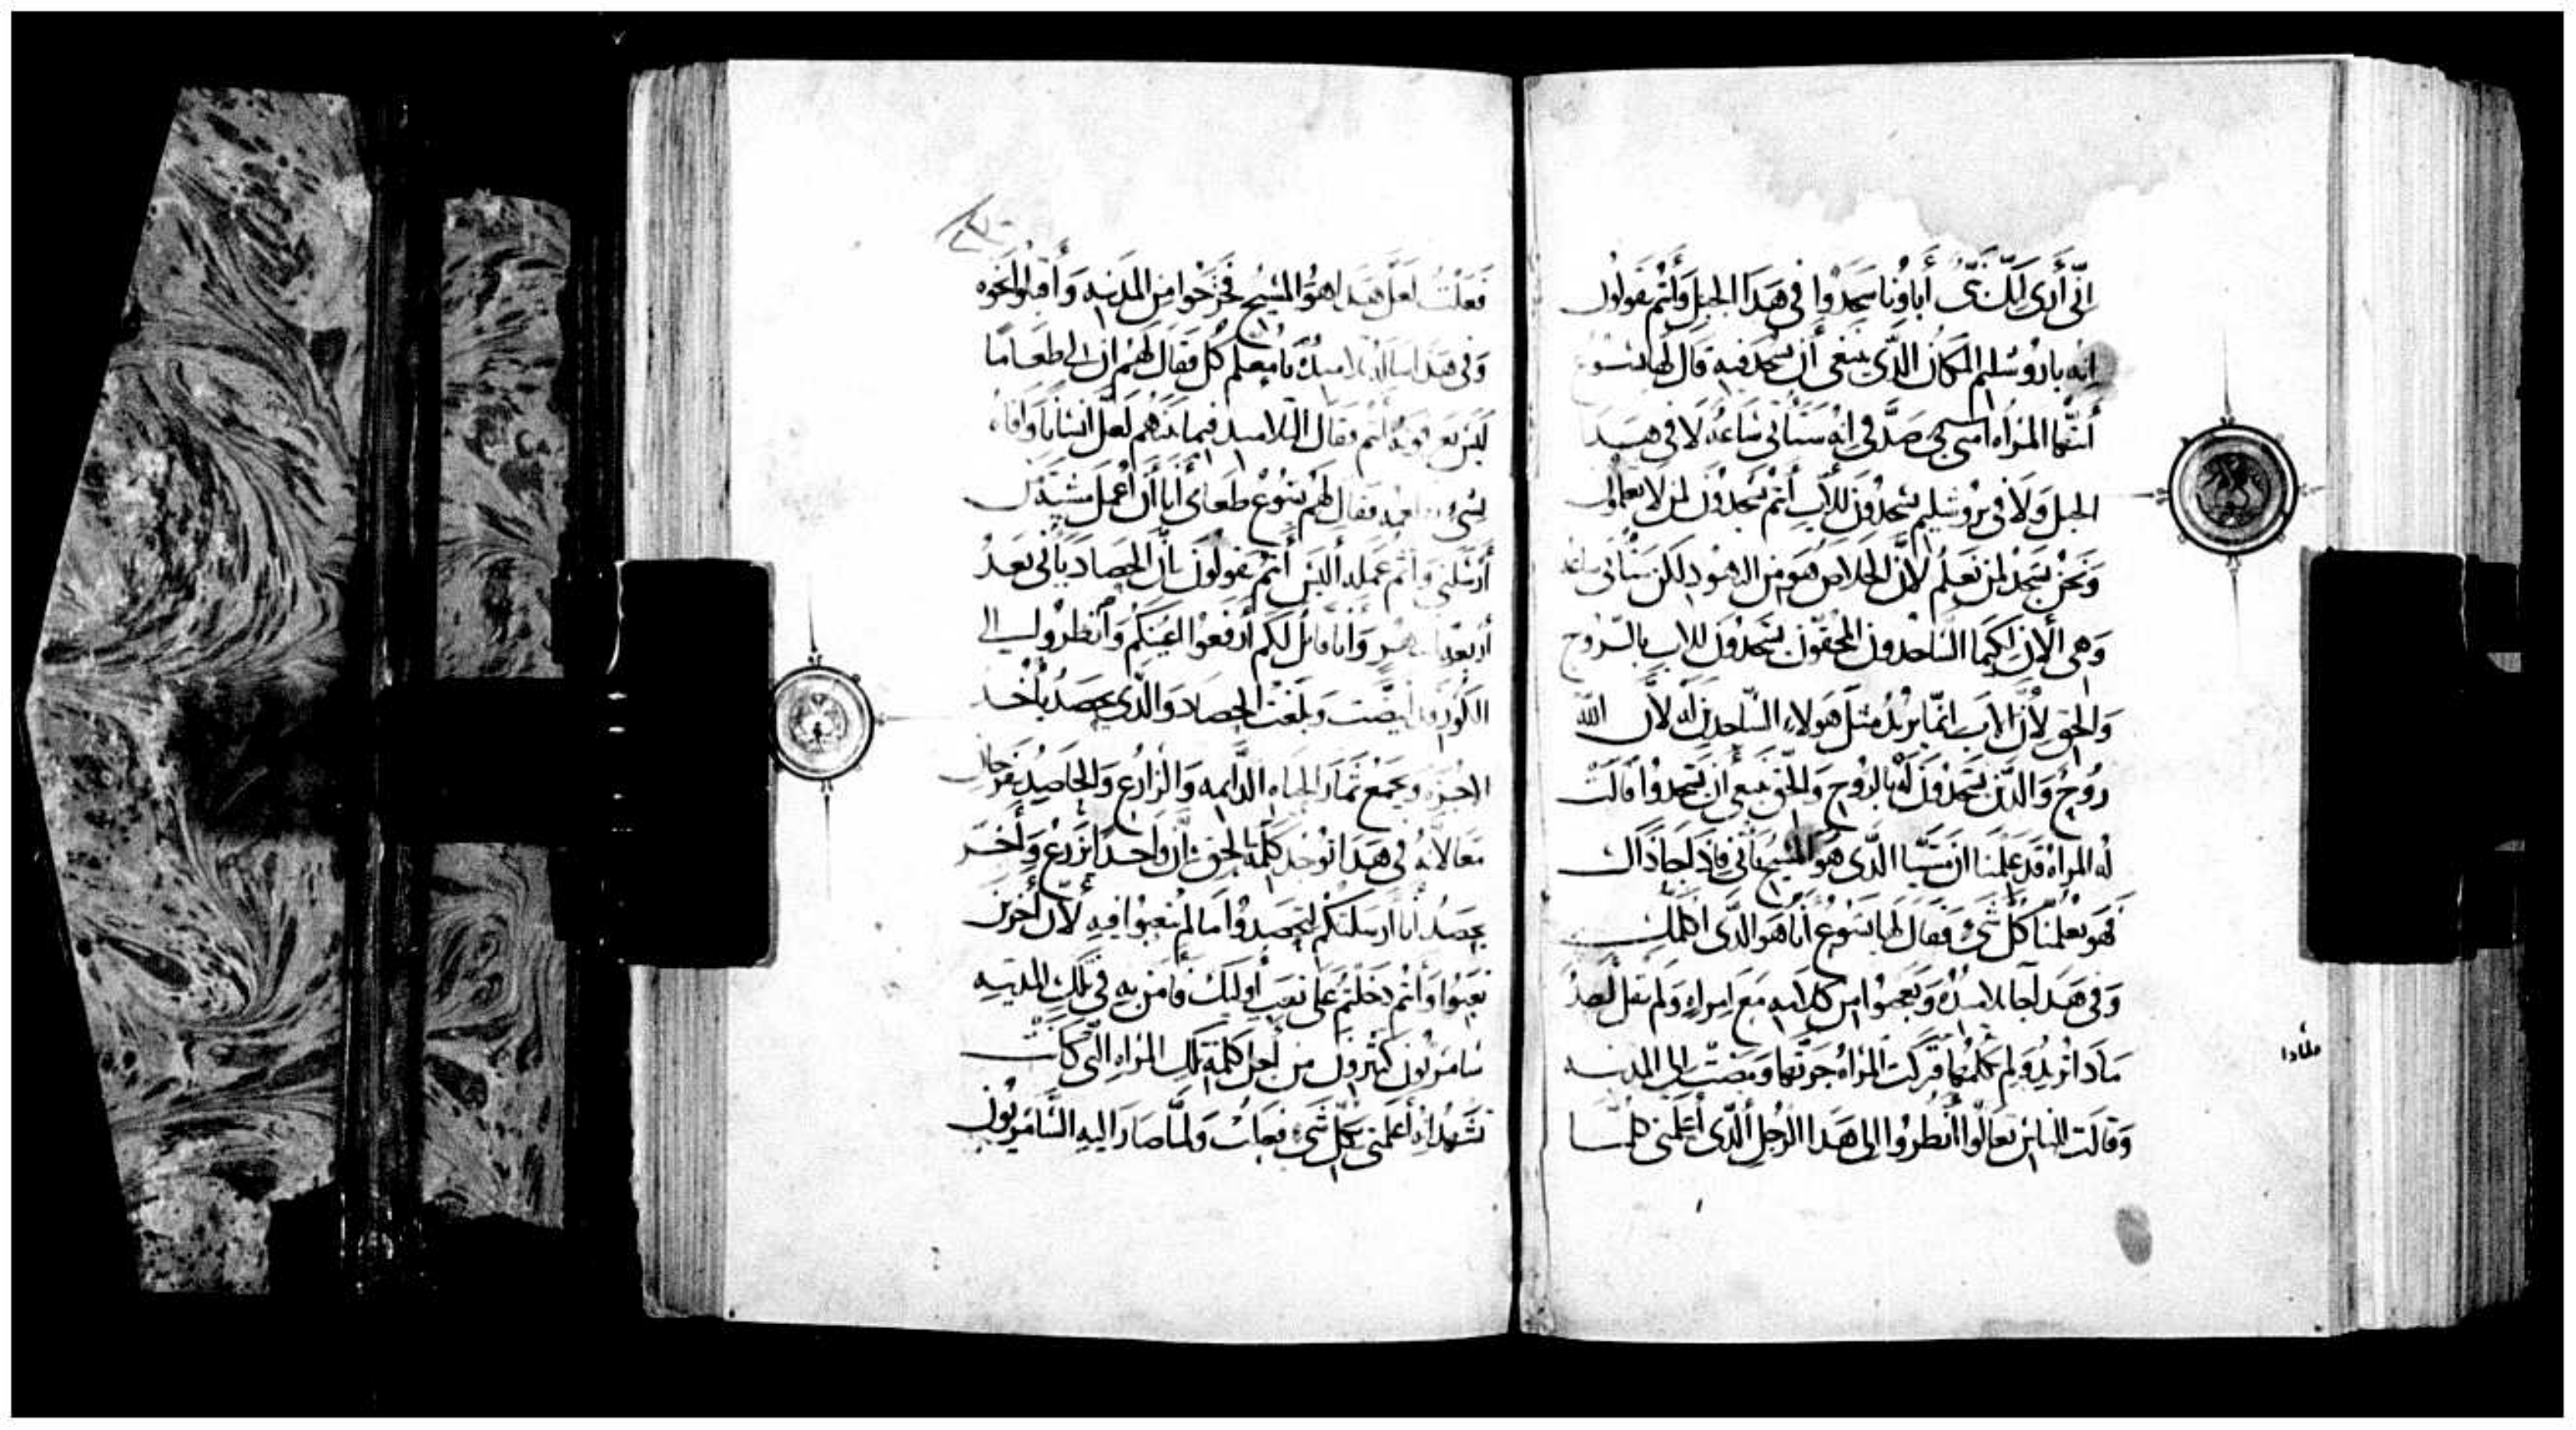 انّى أرى انّك نبّى أباونا سجدوا فى هَذا الجبل وأنتم تقولون
إنه باروشليم المكان الذّى ينبغى أن يسجد فيه قال لها يسوع
أيتها المرأه امنى بى صدّقى إنه ستأتى ساعه لا فى هذا
الجبل ولا فى يروشليم تسجدون للأب أنتم تسجدون لمن لا تعلمون
ونحن نسجد لمن نعلم لأنّ الخلاص هو من اليهود لكن ستأتى ساعه
وهى الأن لكيما السّاجدون المحقّون يسجدون للاب بالرّوح
والحق لأنّ الاب انمّا يريد مثل هولاء السّاجدين له لأن الله
روح والذّين يسجدون له بالروح والحّق ينبغى أن يسجدوا قالت
له المرأه قد علمنا ان مَسيّا الذّى هو المسيح يأتى فاذا جا ذاك
فهو يعلمنا كل شىء فقال لها يسوع أنا هو الذّى اكلمك
وفى هَذا جا تلاميذه وتعجبوا من كلامه مع امراه ولم يقل أحد
ماذا تريد ولم تكلمها فتركت المرأه جرّتها ومضت إلى المدينه
وقالت للناس تعالوا أنظروا إلى هذا الرجل الّذى أعلمنى كلما
ملذا
فعلت لعل هَذا هو المسيح فخرجوا من المدينه وأقبلوا نحوه
وفى هذا سأله تلاميذه يا معلم كل فقال لهم ان لى طعاما
ليس تعرفونه أنتم فقال التلاميذ فيما بينهم لعل انسانا وافاه
بشىء فقال لهم يسوع طعامى أنا أن أعمل مشيّة من
أرسلنى وأتم عمله أليس أنتم تقولون بأنّ الحصاد يأتى بعد
أربعة أشهر وأنا قائل لكم أرفعوا أعينكم وأنظروا إلى
الكور قد أبيضّت وبلغت الحصاد والذّى يحصد يأخذ
الاجره ويجمع ثمار الحياه الدّايمه والزارع والحاصد يفرحان
معا لأنه فى هذا توجد كلمة الحق بأن واحدا يزرع وأخر
يحصد أنا أرسلتكم لتحصدوا ما لم تتعبوا فيه لأن أخرين
تعبوا وأنتم دخلتم على تعب أوليك فأمن به فى تلك المدينه
سامريون كثيرون من أجل كلمة تلك المرأه التّى كانت
تشهد انه أعلمنى بكل شىء فعلت ولمّا صار اليه السّامريون